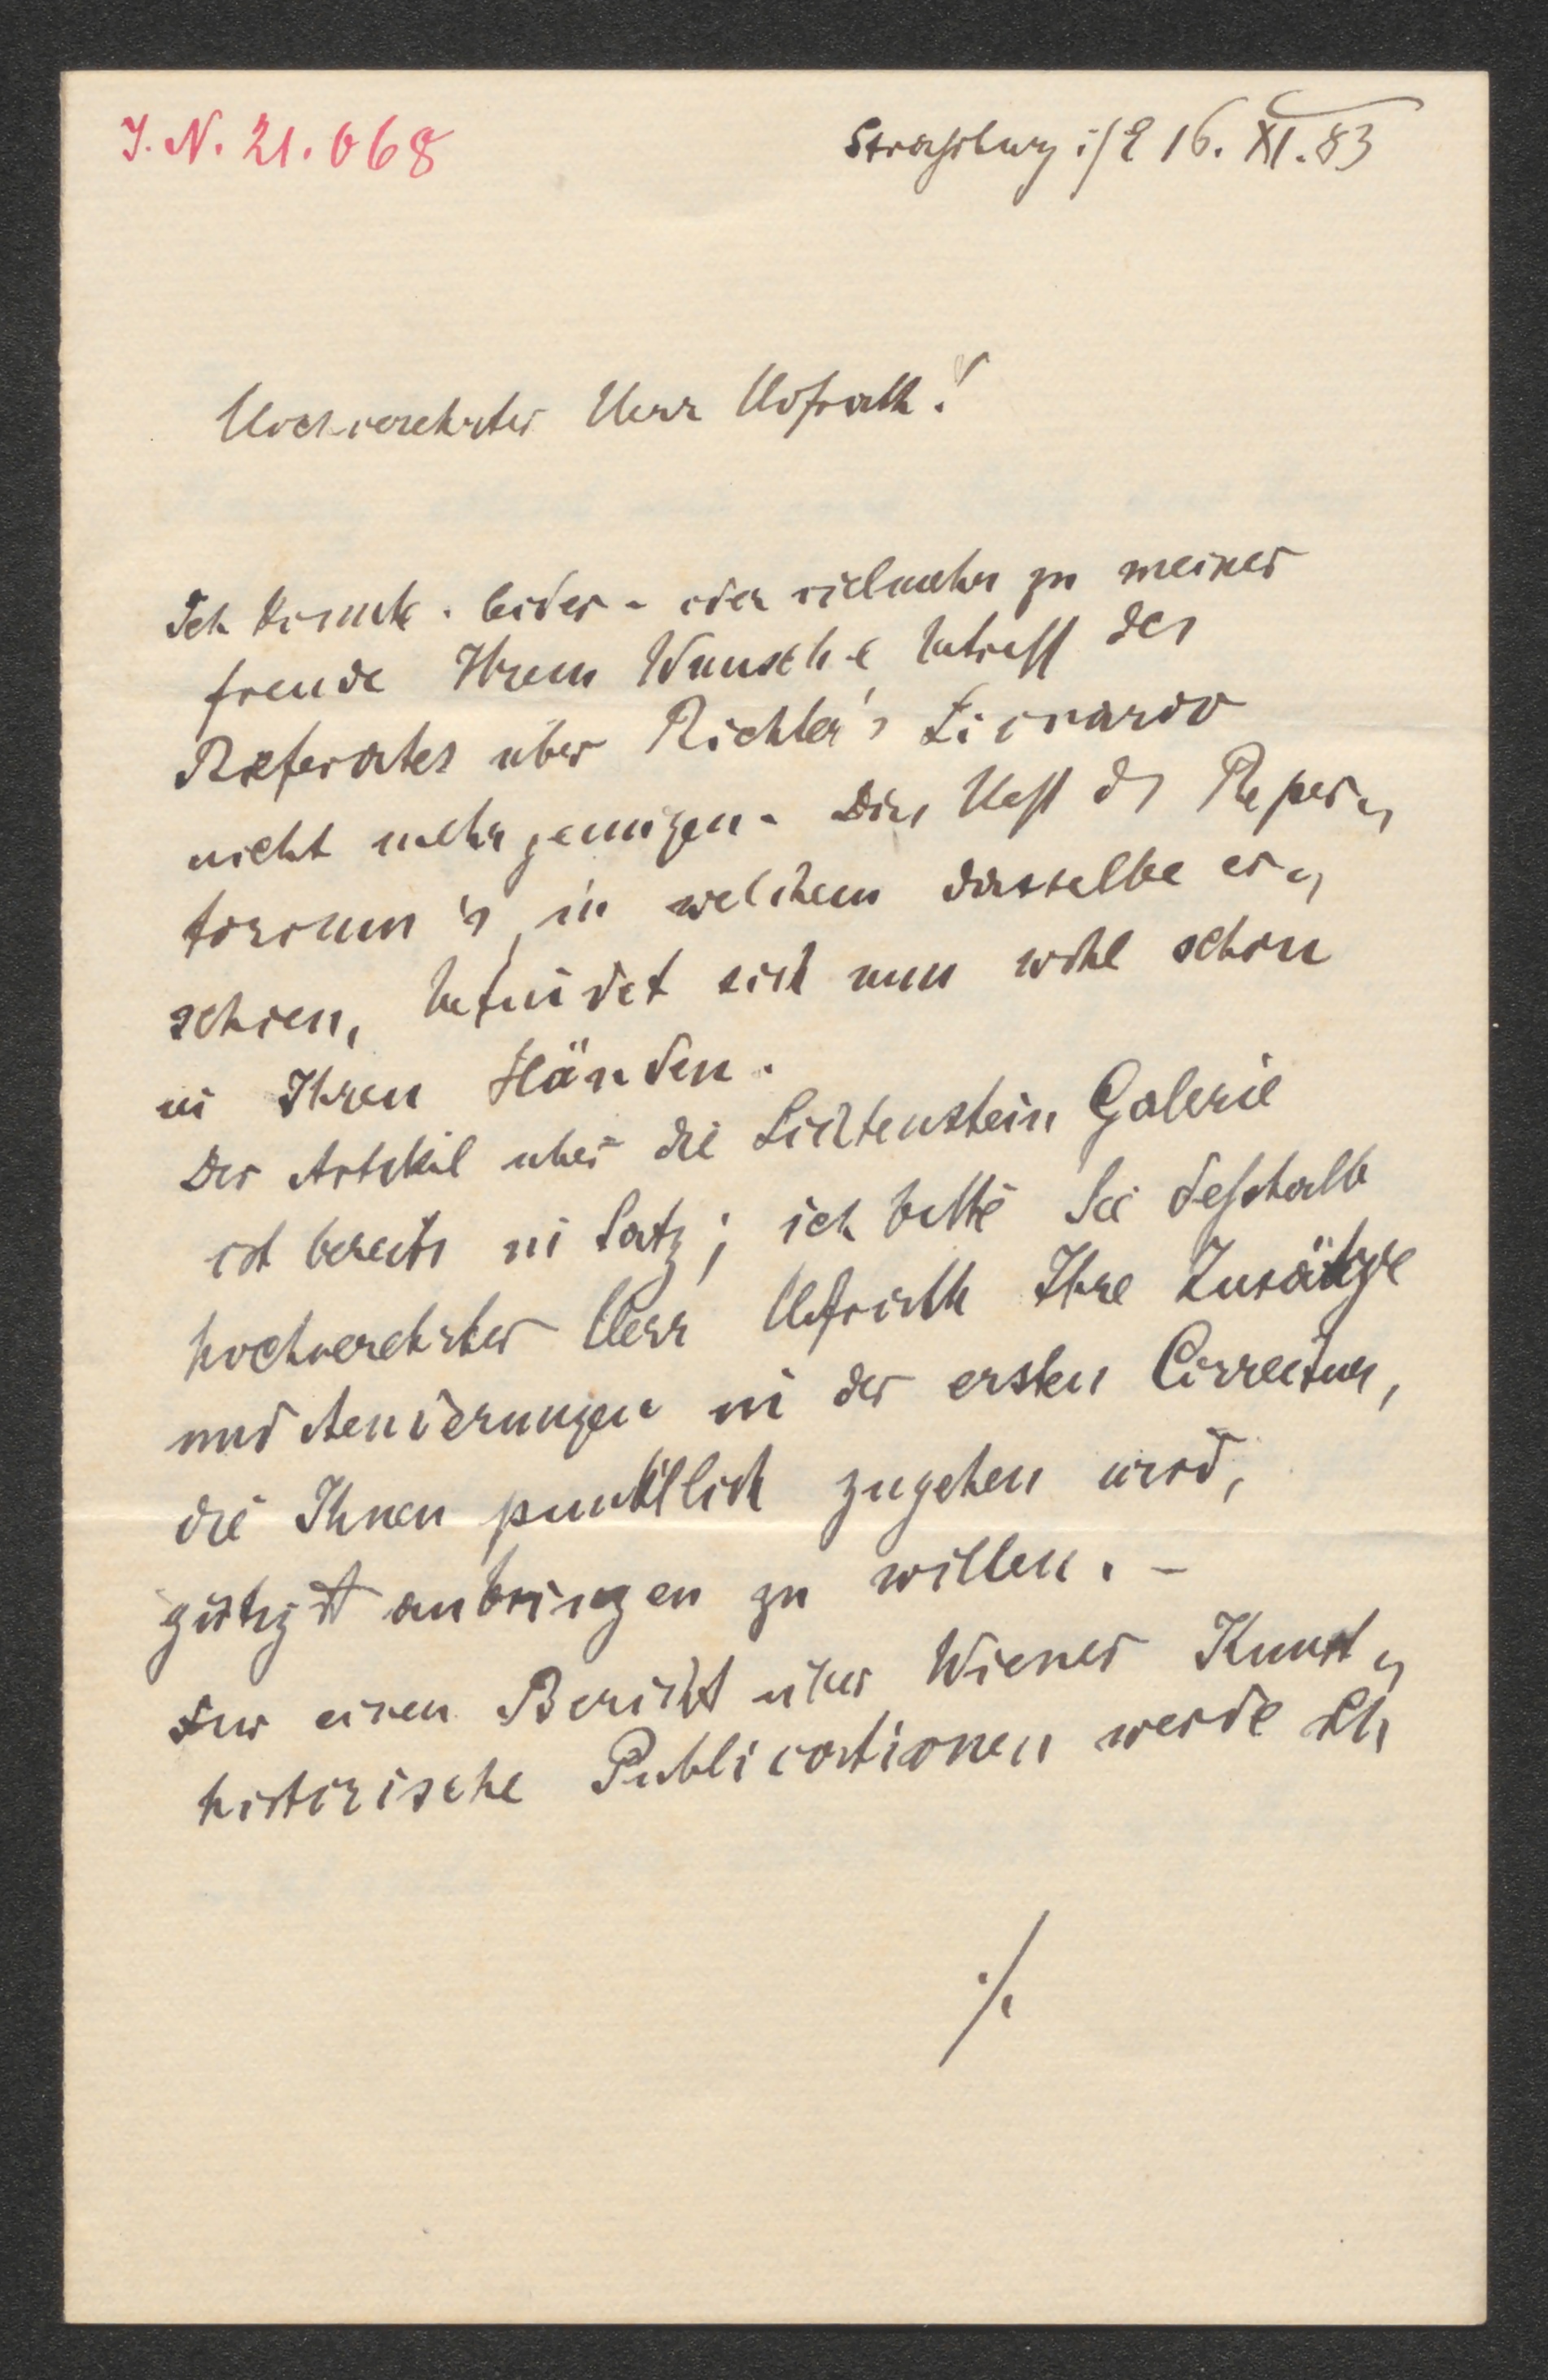 J. N. 21.068
Strassburg i/E 16. XI. 83
Hochverehrter Herr Hofrath!
Ich konnte - leider - oder vielmehr zu meiner
Freude Ihrem Wunsche betreff des
Referates über Richter's Lionardo
nicht mehr genügen. Das Heft des Reper-
torium's, in welchem dasselbe er-
schien, befindet sich nun wohl schon
in Ihren Händen.
Der Artikel über die Lichtenstein Galerie
ist bereits in Satz; ich bitte Sie desshalb
hochverehrter Herr Hofrath Ihre Zusätze
und Aenderungen in der ersten Correctur,
die Ihnen punktlich zugehen wird,
gütigst anbringen zu wollen. -
Für einen Bericht über Wiener Kunst-
historische Publicationen werde ich
./.